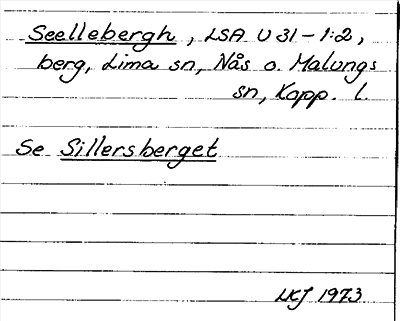 Seellebergh, LSA U 31 - 1:2,
berg, Lima sn, Nås o. Malungs
sn, Kopp. l.
Se Sillersberget
LKJ 1973